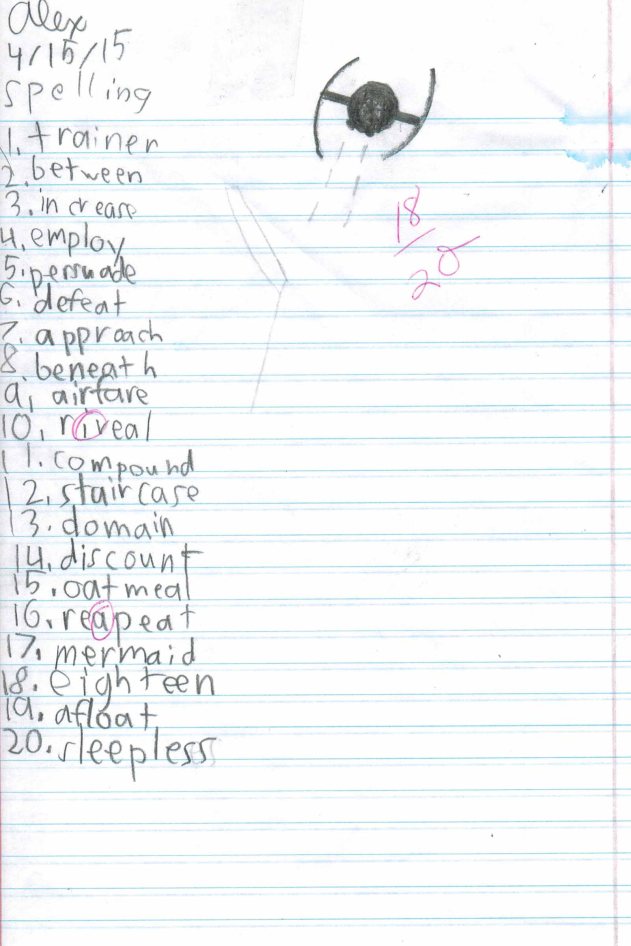 Alex
4/15/15
spelling
1. trainer
2. between
3. increase
4. employ
5. persuade
6. defeat
7. approach
8. beneath
9. airfare
10. riveal
11. compound
12. staircase
13. domain
14. discount
15. oatmeal
16. reapeat
17. mermaid
18. eighteen
19. afloat
20. sleepless
18/20